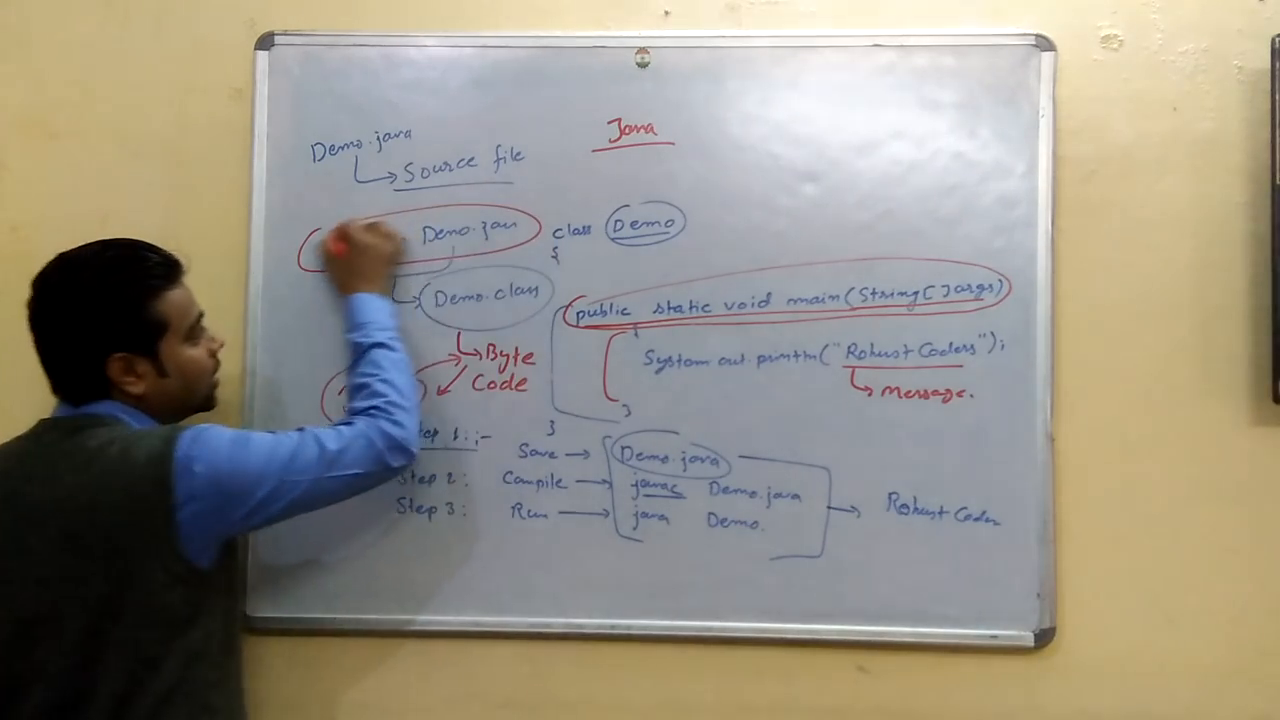 Java
Demo.java
Source file
Demo.java
class Demo
{
Demo.class
public static void main(String[]args)
{
Byte
Code
System.out.println("Robust Coders");
message.
}
}
Step 1:-
Save → Demo.java
Step 2: Compile → javac Demo.java
Step 3: Run → java Demo.
Robust Coder